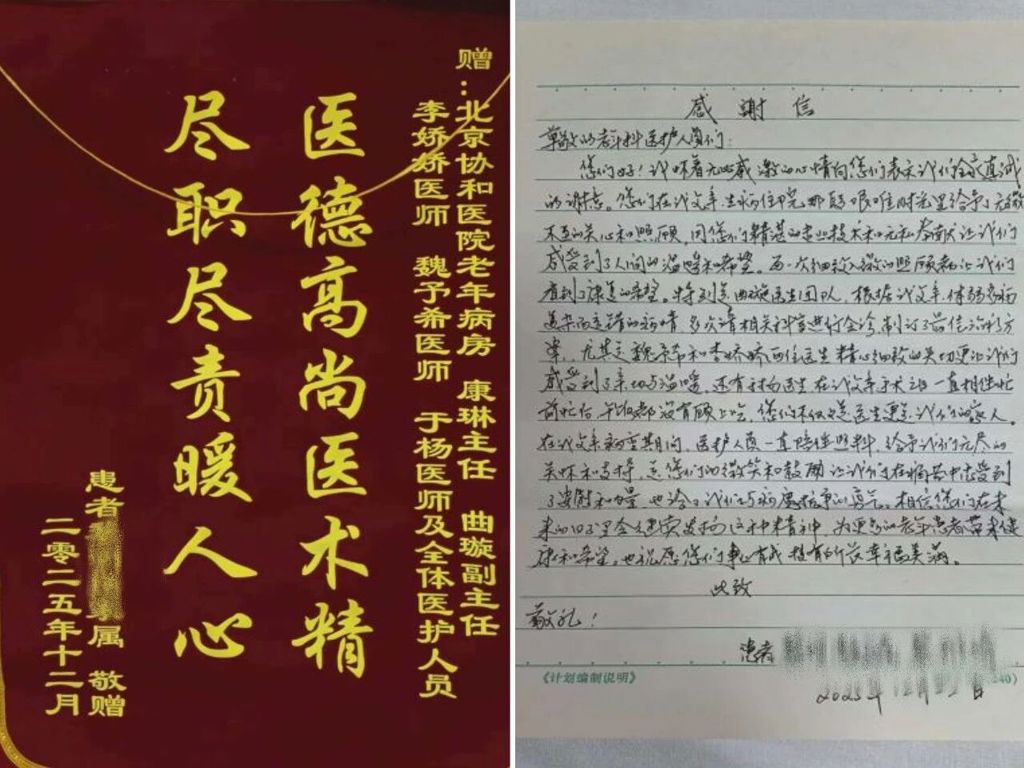 赠：北京协和医院老年病房 康琳主任 曲璇副主任
李娇娇医师 魏予希医师 于杨医师及全体医护人员
医德高尚医术精
尽职尽责暖人心
患者 属 敬赠
二零二五年十二月
感谢信
尊敬的老年科医护人员们：
您们好！我怀着无比感激的心情向您们表示我们全家真诚
的谢意。您们在我父亲生病住院，那段艰难时光里给予了无微
不至的关心和照顾，用您们精湛的专业技术和无私奉献让我们
感受到了人间的温暖和希望。每一次细致入微的照顾都让我们
看到了康复的希望。特别是曲璇医生团队，根据我父亲体弱多病
复杂而交错的病情 多次请相关科室进行会诊 制订了最佳治疗方
案，尤其是魏予希和李娇娇两位医生精心细致的关切更让我们
感受到了亲切与温暖，还有于杨医生在我父亲手术之后一直相伴忙
前忙后 午饭都没有顾上吃，您们不仅是医生更是我们的家人。
在我父亲病重期间，医护人员一直陪伴照料，给予我们无尽的
关怀和支持，是您们的微笑和鼓励让我们在痛苦中感受到
了安慰和力量 也给了我们与病魔抗争的勇气。相信您们在未
来的日子里会继续发扬这种精神，为更多的老年患者带来健
康和希望，也祝愿您们事业有成 拥有所长幸福美满。
此致
敬礼！
患者
2025年12月 日
《计划编制说明》
240)